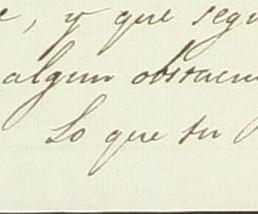 , y que segu
algun obstacu
Lo que su